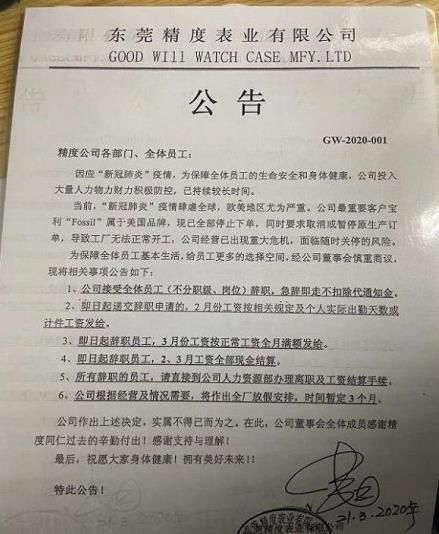 东莞精度表业有限公司
GOOD Will WATCH CASE MFY.LTD
公告
GW-2020-001
精度公司各部门、全体员工：
因应“新冠肺炎”疫情，为保障全体员工的生命安全和身体健康，公司投入
大量人力物力财力积极防控，已持续较长时间。
当前，“新冠肺炎”疫情肆虐全球，欧美地区尤为严重。公司最重要客户宝
利“Fossil”属于美国品牌，现已全部停止下单，同时要求取消或暂停原生产订
单，导致工厂无法正常开工，公司经营已出现重大危机，面临随时关停的风险。
为保障全体员工基本生活，给员工更多的选择空间，经公司董事会慎重商议，
现将相关事项公告如下：
1、公司接受全体员工（不分职级、岗位）辞职，急辞即走不扣除代通知金。
2、即日起递交辞职申请的，2月份工资按相关规定及个人实际出勤天数或
计件工资发给。
3、即日起辞职员工，3月份工资按正常工资全月满额发给。
4、即日起辞职员工，2、3月工资全部现金结算。
5、所有辞职的员工，请直接到公司人力资源部办理离职及工资结算手续。
6、公司根据经营及情况需要，将作出全厂放假安排，时间暂定3个月。
公司作出上述决定，实属不得已而为之。在此，公司董事会全体成员感谢精
度同仁过去的辛勤付出！感谢支持与理解！
最后，祝愿大家身体健康！拥有美好未来！！
特此公告！
31.3.2020年